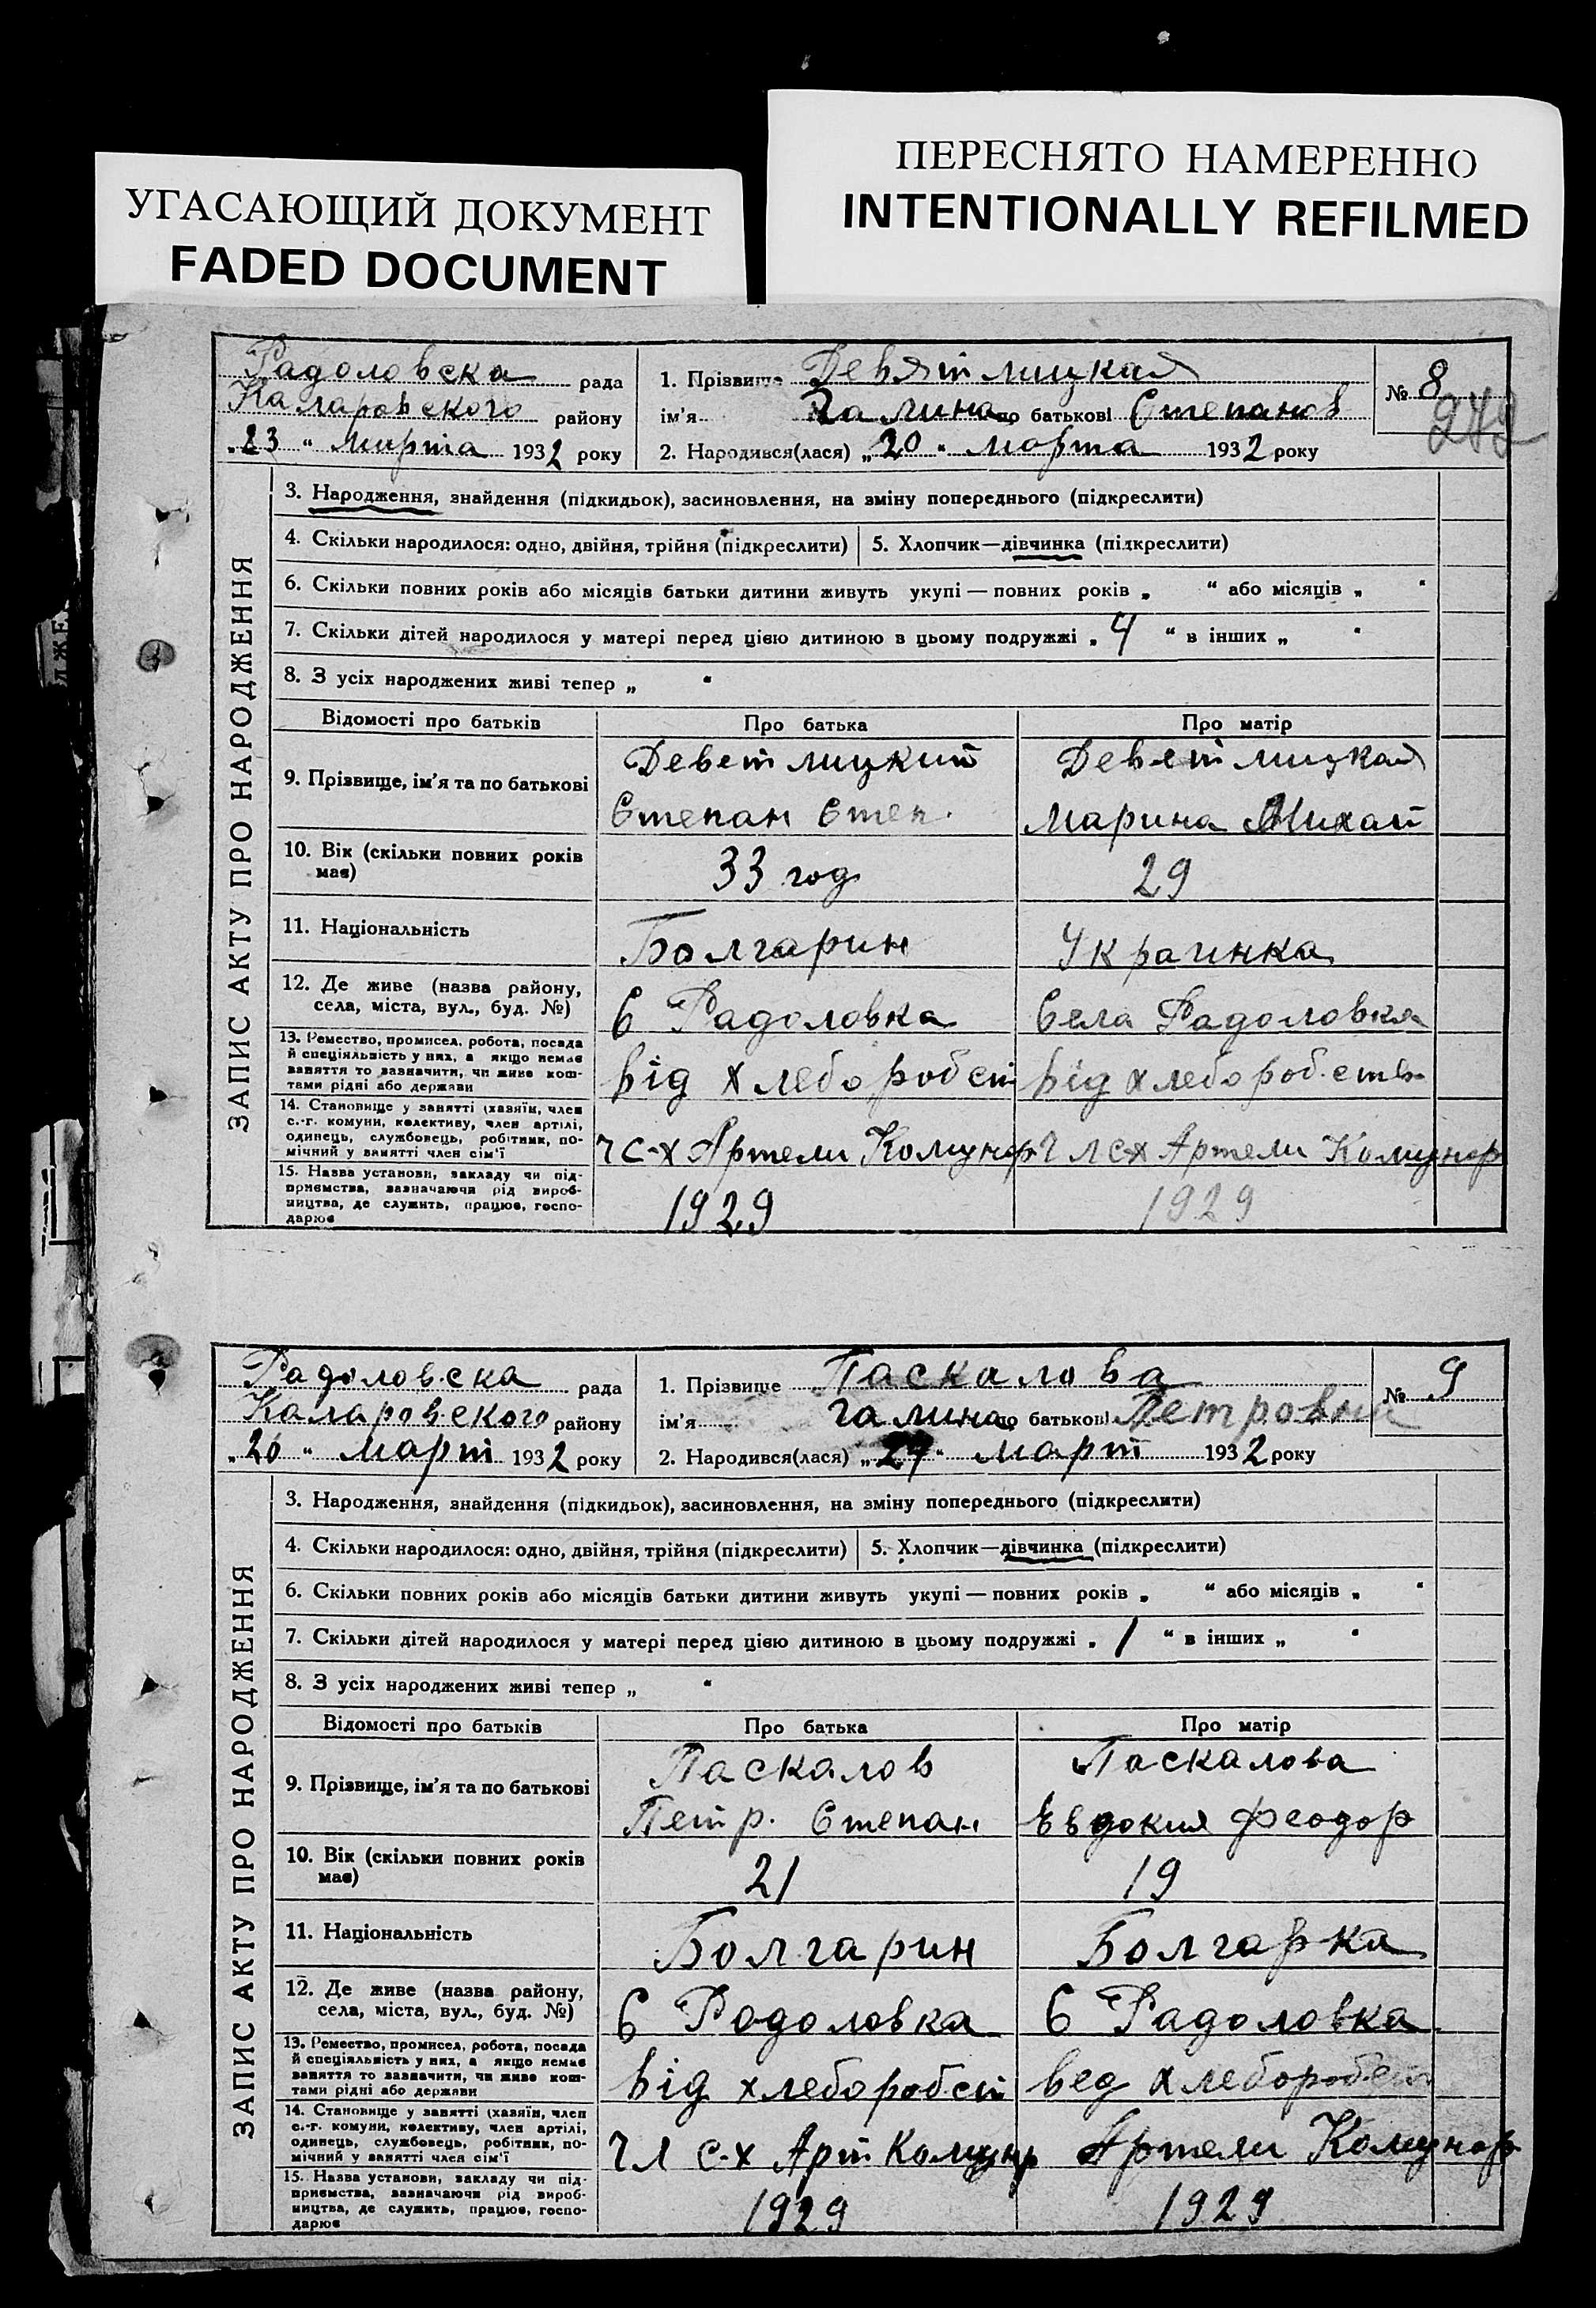 ПЕРЕСНЯТО НАМЕРЕННО
INTENTIONALLY REFILMED
УГАСАЮЩИЙ ДОКУМЕНТ
FADED DOCUMENT
ЗАПИС АКТУ ПРО НАРОДЖЕННЯ
Радоловска рада
Каларовского району
„23“ марта 1932 року
1. Прізвище Девятлицкая
ім'я Галина по батькові Степанов
2. Народився(лася) „20“ марта 1932 року
№ 8
272
3. Народження, знайдення (підкидьок), засиновлення, на зміну попереднього (підкреслити)
4. Скільки народилося: одно, двійня, трійня (підкреслити) 5. Хлопчик—дівчинка (підкреслити)
6. Скільки повних років або місяців батьки дитини живуть укупі — повних років „ “ або місяців „ “
7. Скільки дітей народилося у матері перед цією дитиною в цьому подружжі „ 4 “ в інших „ “
8. З усіх народжених живі тепер „ “
Відомості про батьків Про батька Про матір
9. Прізвище, ім'я та по батькові
Деветлицкий Деветлицкая
Степан Степ. Марина Михай
10. Вік (скільки повних років має) 33 год 29
11. Національність Болгарин Украинка
12. Де живе (назва району, села, міста, вул., буд. №)
С Радоловка Села Радоловка
13. Ремество, промисел, робота, посада й спеціяльність у них, а якщо немає заняття то зазначити, чи живе коштами рідні або держави
від хлеборобст від хлеборобства
14. Становище у занятті (хазяїн, член с.-г. комуни, колективу, член артілі, одинець, службовець, робітник, помічний у занятті член сім'ї
ч с-х Артели Комунар чл с-х Артели Комунар
15. Назва установи, закладу чи підприємства, зазначаючи рід виробництва, де служить, працює, господарює
1929 1929
ЗАПИС АКТУ ПРО НАРОДЖЕННЯ
Радоловска рада
Каларовского району
„26“ март 1932 року
1. Прізвище Паскалова
ім'я Галина по батькові Петровна
2. Народився(лася) „24“ март 1932 року
№ 9
3. Народження, знайдення (підкидьок), засиновлення, на зміну попереднього (підкреслити)
4. Скільки народилося: одно, двійня, трійня (підкреслити) 5. Хлопчик—дівчинка (підкреслити)
6. Скільки повних років або місяців батьки дитини живуть укупі — повних років „ “ або місяців „ “
7. Скільки дітей народилося у матері перед цією дитиною в цьому подружжі „ 1 “ в інших „ “
8. З усіх народжених живі тепер „ “
Відомості про батьків Про батька Про матір
9. Прізвище, ім'я та по батькові
Паскалов Паскалова
Петр. Степан Евдокия Феодор
10. Вік (скільки повних років має) 21 19
11. Національність Болгарин Болгарка
12. Де живе (назва району, села, міста, вул., буд. №)
С Родоловка С Радоловка
13. Ремество, промисел, робота, посада й спеціяльність у них, а якщо немає заняття то зазначити, чи живе коштами рідні або держави
від хлеборобст вед хлеборобст
14. Становище у занятті (хазяїн, член с.-г. комуни, колективу, член артілі, одинець, службовець, робітник, помічний у занятті член сім'ї
чл с-х Арт Комунр Артели Комунар
15. Назва установи, закладу чи підприємства, зазначаючи рід виробництва, де служить, працює, господарює
1929 1929